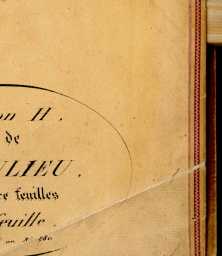 on H.
de
ULIEU.
re feuilles
feuille.